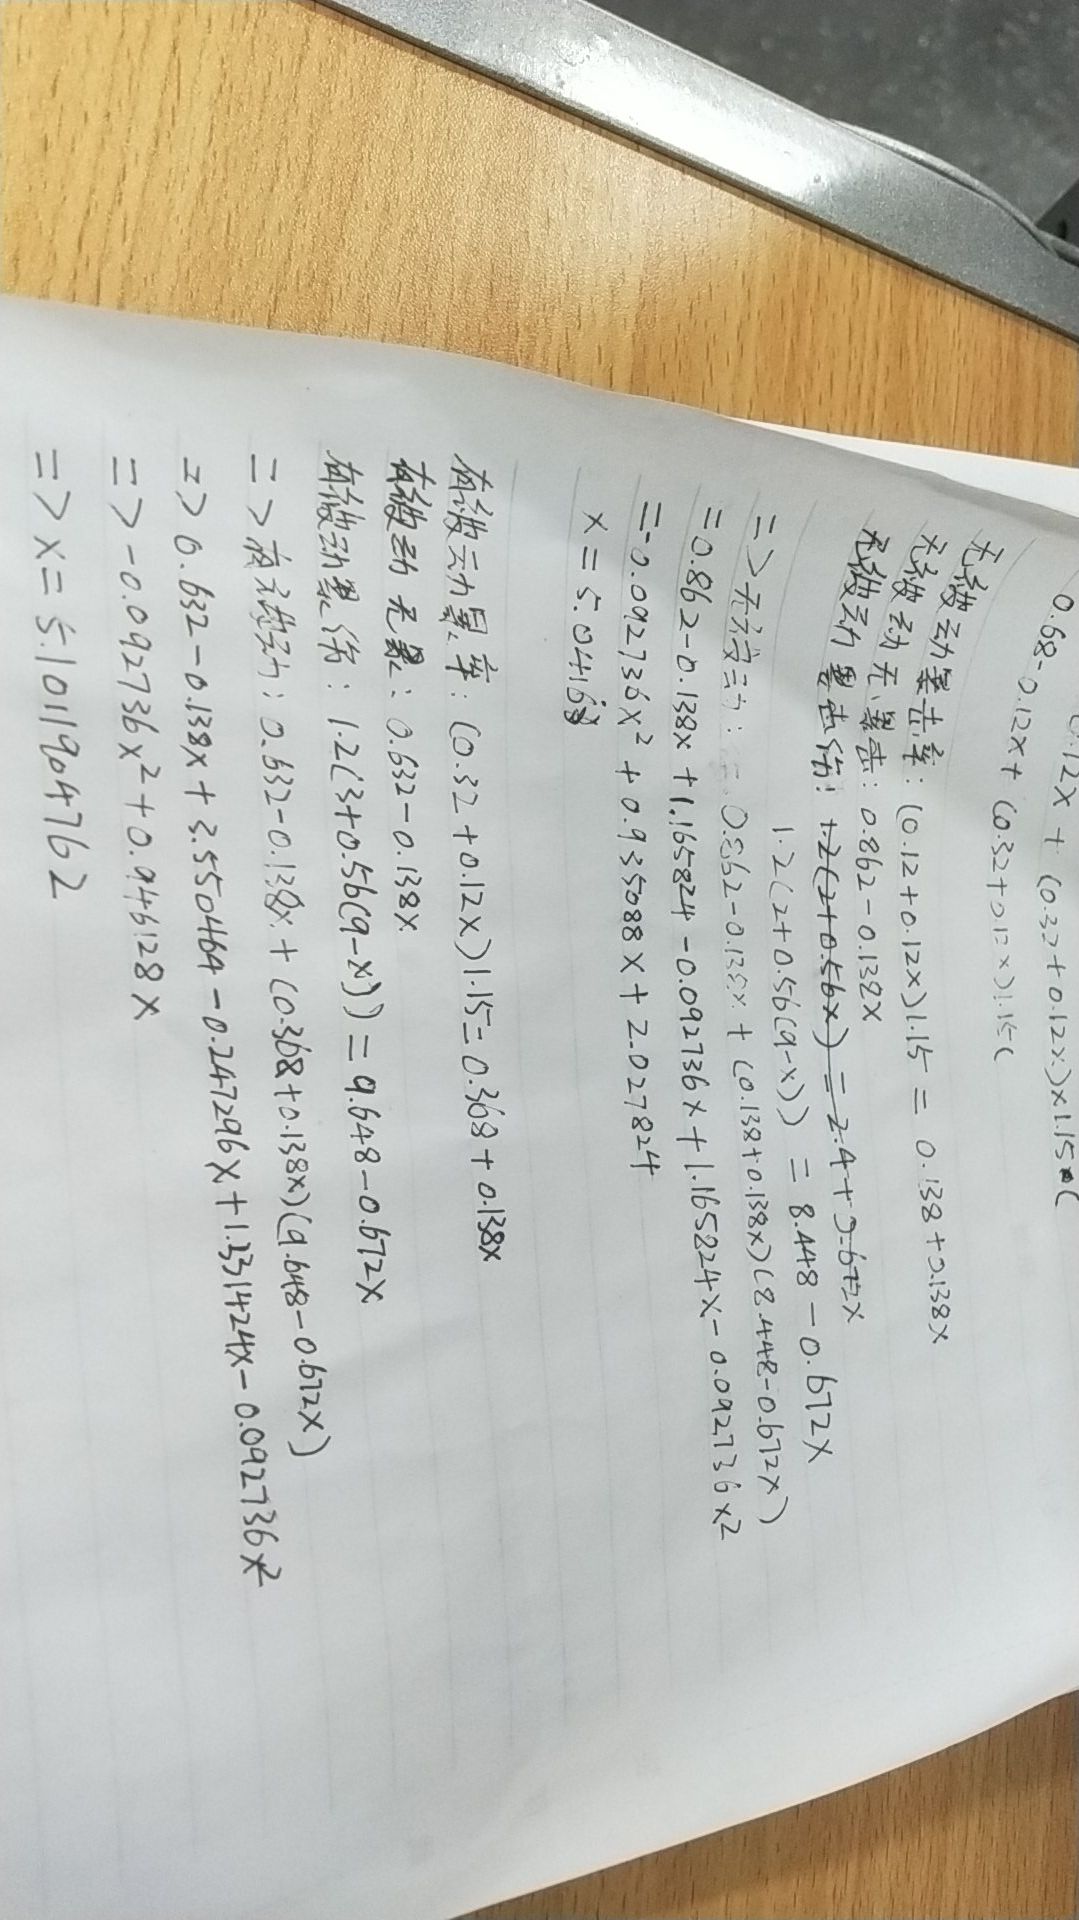 0.12x + (0.32+0.12x)×1.15(
0.68-0.12x+(0.32+0.12x)1.15(
无被动暴击率: (0.12+0.12x)1.15 = 0.138+0.138x
无被动无暴击: 0.862-0.138x
无被动暴击伤: 1.2(2+0.56x) = 2.4+0.672x
1.2(2+0.56(9-x)) = 8.448-0.672x
=>无被动: = 0.862-0.138x+(0.138+0.138x)(8.448-0.672x)
=0.862-0.138x+1.165824-0.092736x+1.165824x-0.092736x2
=-0.092736x²+0.935088x+2.027824
x=5.04168
有被动暴率: (0.32+0.12x)1.15=0.368+0.138x
有被动无暴: 0.632-0.138x
有被动暴伤: 1.2(3+0.56(9-x))=9.648-0.672x
=>有被动: 0.632-0.138x+(0.368+0.138x)(9.648-0.672x)
=> 0.632-0.138x+3.550464-0.247296x+1.331424x-0.092736x²
=> -0.092736x²+0.946128x
=> x=5.1011904762